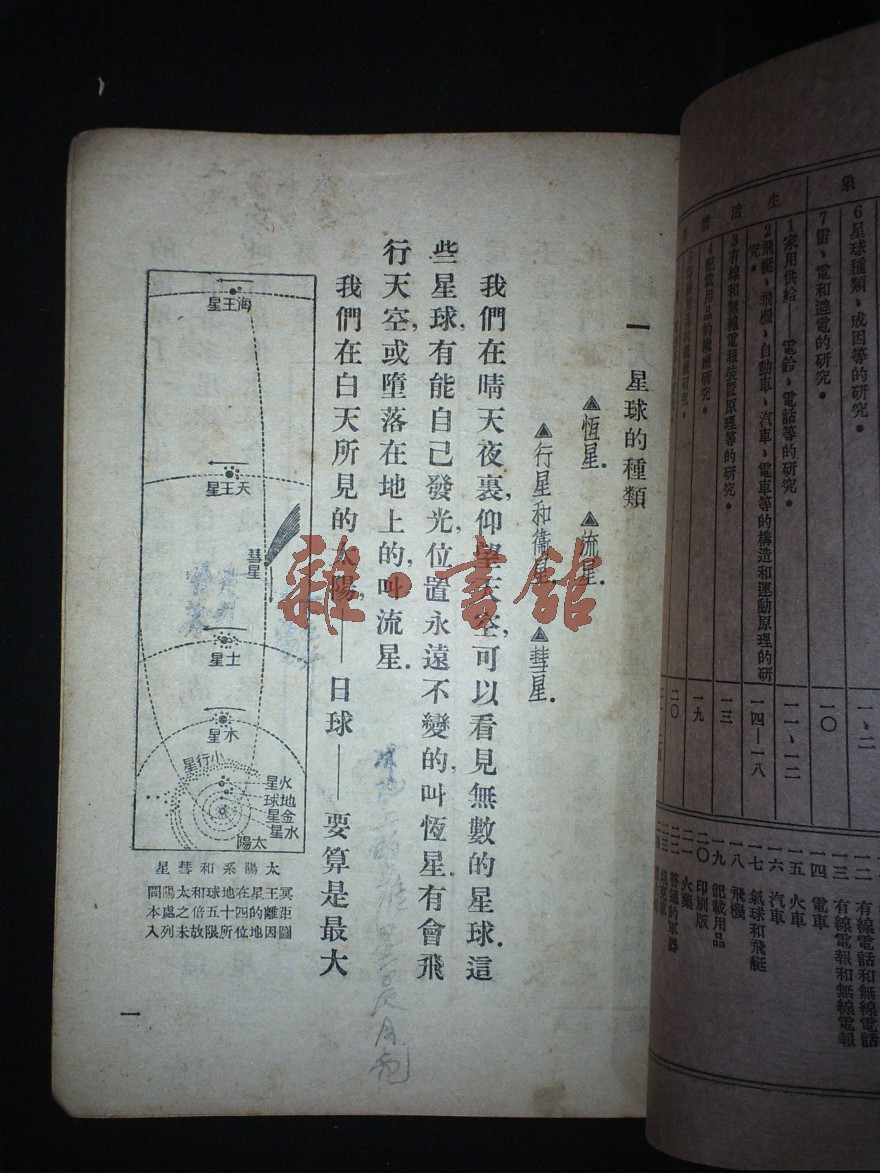 象
6星球種類、成因等的研究。
一、二
7雷、電和避電的研究。
一〇
生活
1家用供給——電鈴、電話等的研究。
一一、一二
2飛艇、飛機、自動車、汽車、電車等的構造和運動原理的研究。
一四—一八
3有線和無線電報裝置原理等的研究。
一三
4記載用品的機械研究。
一九
二〇
一二 有線電話和無線電話
一三 有線電報和無線電報
一四 電車
一五 火車
一六 汽車
一七 氣球和飛艇
一八 飛機
一九 記載用品
二〇 印刷版
火藥
一 星球的種類
▲恆星. ▲流星.
▲行星和衞星. ▲彗星.
我們在晴天夜裏,仰望天空,可以看見無數的星球.這
些星球,有能自己發光,位置永遠不變的,叫恆星.有會飛
行天空,或墮落在地上的,叫流星.
我們在白天所見的太陽,——日球——要算是最大
海王星
天王星
彗星
土星
木星
小行星
火星
地球
金星
水星
太陽
太陽系和彗星
冥王星在地球和太陽間
距離的四十五倍之本
圖因地位所限故未列入
一
雜·書館